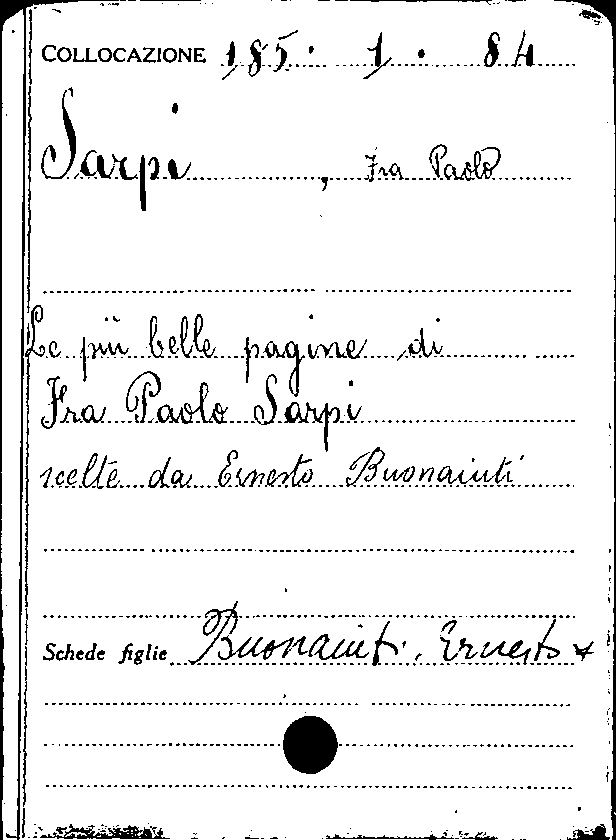 COLLOCAZIONE 185. 1. 84
Sarpi, Fra Paolo
Le più belle pagine di
Fra Paolo Sarpi
scelte da Ernesto Buonaiuti
Schede figlie Buonaiuti, Ernesto x